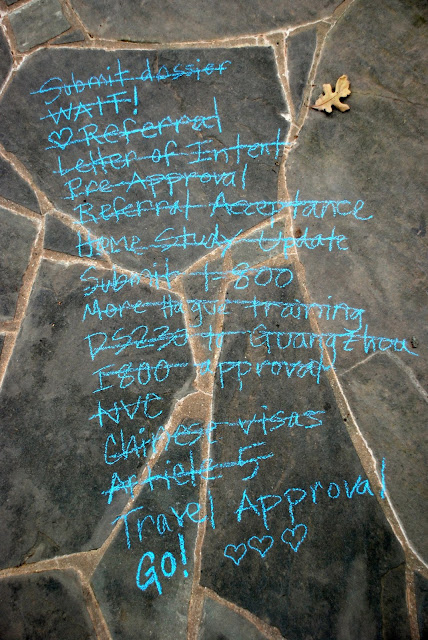 Submit dossier
WAIT!
♡ Referral
Letter of Intent
Pre-Approval
Referral Acceptance
Home Study Update
Submit I-800
More Hague training
DS230 to Guangzhou
I800 approval
NVC
Chinese visas
Article 5
Travel Approval
Go! ♡♡♡